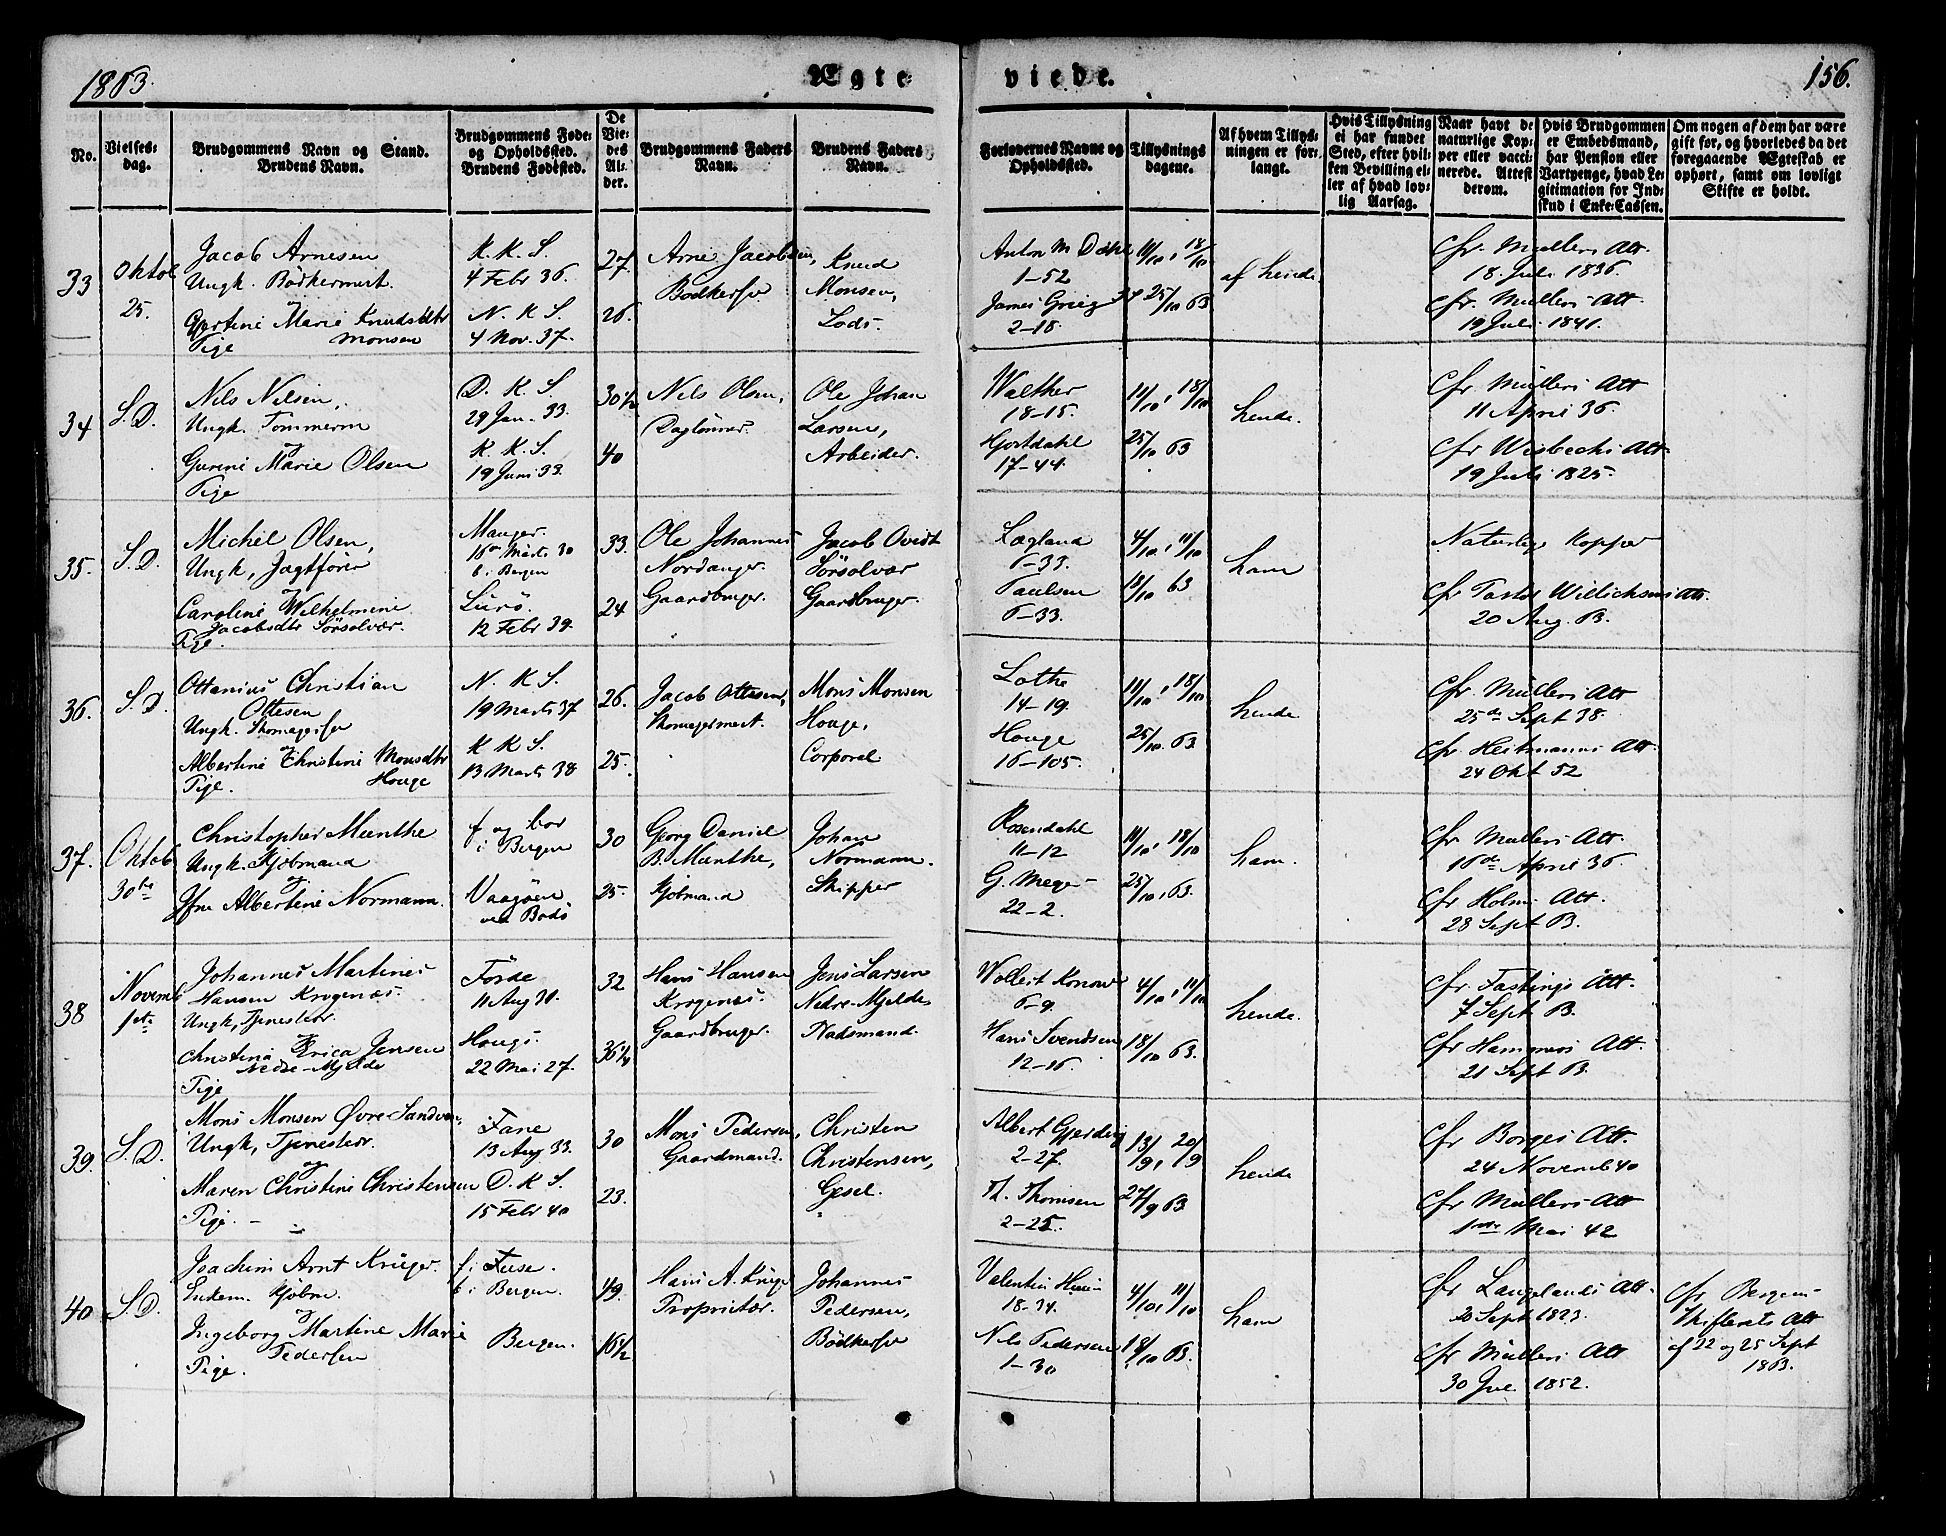 1863.
Ægte
viede.
156.
No.
Vielses-
dag.
Brudgommens Navn og Stand.
Brudens Navn.
Brudgommens Føde-
og Opholdssted.
Brudens Fødested.
De
Vie-
des
Al-
der.
Brudgommens Faders
Navn.
Brudens Faders
Navn.
Forlovernes Navne og
Opholdssted.
Tillysnings
dagene.
Af hvem Tillys-
ningen er for-
langt.
Hvis Tillysning
ei har fundet
Sted, efter hvil-
ken Bevilling el-
ler af hvad lov-
lig Aarsag.
Naar havt de
naturlige Kop-
per eller vacci-
nerede. Attest
derom.
Hvis Brudgommen
er Embedsmand,
har Pension eller
Vartpenge, hvad Le-
gitimation for Ind-
skud i Enke-Cassen.
Om nogen af dem har være
gift før, og hvorledes da det
foregaaende Ægteskab er
ophørt, samt om lovligt
Skifte er holdt.
33
Oktob
25.
Jacob Arnesen
Ungk. Bödkermest.
Gjertine Marie Knudsdtr
Pige Monsen
K. K. S.
4 Febr 36.
N. K. S.
4 Nov. 37.
27.
26.
Arne Jacobsen,
Bödkersv
Knud
Monsen,
Lods.
Anton M Dahl
1-52
James Grieg 34
2-18.
11/10, 18/10
25/10 63
af hende.
Cfr. Müllers Att
18. Juli 1836.
Cfr. Müllers Att
19 Juli 1841.
34
S. D.
Nils Nilsen,
Ungk. Tömmerm
og
Gurine Marie Olsen
Pige
D. K. S.
29 Jan. 33.
K. K. S.
19 Juni 23.
30 1/2
40
Nils Olsen,
Daglönner.
Ole Johan
Larsen,
Arbeider.
Walther
18-15.
Hjortdahl
17-44.
11/10, 18/10
25/10 63
hende.
Cfr Müllers Att
11 April 36.
Cfr Wisbechs Att.
19 Juli 1825.
35.
S. D.
Michel Olsen,
Ungk, Jagtförer
og
Caroline Wilhelmine
Jacobsdtr Sörsolvær.
Pige.
Manger.
16de Marts 30
b. i Bergen
Lurö.
12 Febr 39.
33.
24
Ole Johannes
Nordanger.
Gaardbruger.
Jacob Qvist
Sörsolvær
Gaardbruger.
Lægland
6-33.
Paulsen
6-33.
4/10, 11/10
18/10 63
ham
Naturlige Kopper
Cfr Pastor Willichsens Att.
20 Aug. 63.
36.
S. D.
Ottanius Christian
Ottesen
Ungk. Skomagersv
og
Albertine Christine Monsdtr
Pige. Houge
N. K S.
19 Marts 37
K K S.
13 Marts 38
26.
25.
Jacob Ottesen,
Skomagermest.
Mons Monsen
Houge,
Corporal
Lothe
14-19.
Houge
16-105.
11/10, 18/10
25/10. 63.
hende
Cfr. Müllers Att
25de Sept 38.
Cfr. Heitmanns Att.
24 Okt 52
37.
Oktob
30te
Christopher Munthe
Ungk. Kjöbmand
og
Jfru Albertine Normann.
f og bor
i Bergen
Vaagöen
ved Bodö
30
25.
Georg Daniel
B. Munthe,
Kjöbmand
Johan
Normann.
Skipper
Rosendahl
11-12
G. Meyer
22-2.
11/10, 18/10
25/10, 63.
ham.
Cfr Müllers Att.
16de April 36
Cfr Holms Att.
28 Sept 63.
38
Novemb
1ste
Johannes Martines
Hansen Krogenæs.
Ungk, Tjenestekr.
og
Christina Erica Jensen
Nedre-Mjelde
Pige
Förde
11 Aug 31.
Hougs.
22 Mai 27.
32
36 1/4
Hans Hansen
Krogenæs.
Gaardbruger.
Jens Larsen
Nedre-Mjelde
Pladsmand.
Wollert Konow
6-9.
Hans Svendsen
12-16.
4/10, 11/10
18/10 63.
hende.
Cfr. Fastings Att.
7 Sept 63.
Cfr Hammers Att.
21 Sept 63.
39.
S. D.
Mons Monsen Øvre-Sandven,
Ungk, Tjenestekr.
og
Maren Christine Christensen
Pige.
Fane
13 Aug 33.
D. K S.
15 Febr 40
30
23.
Mons Pedersen,
Gaardmand.
Christen
Christensen,
Gesel.
Albert Gjerding
2-27.
Th. Thomsen
2-25.
13/9, 20/9
27/9 63.
hende
Cfr Borges Att.
24 Novemb 40
Cfr Müllers Att
1ste Mai 42
40
S. D.
Joachim Arnt Krüger.
Enkem. Kjöbm.
og
Ingeborg Martine Marie
Pedersen
Pige.
f. i Fuse.
b. i Bergen.
Bergen.
49.
16 1/2
Hans A. Krüger
Proprietær.
Johannes
Pedersen,
Bödkersv
Valentin
18-34.
Nils Pedersen
1-30
4/10, 11/10
18/10 63.
ham
Cfr Langelands Att.
20 Sept 1823.
Cfr Müllers Att
30 Jul 1852.
Cfr. Bergens
Skifterets Att
af 22 og 25 Sept
1863.